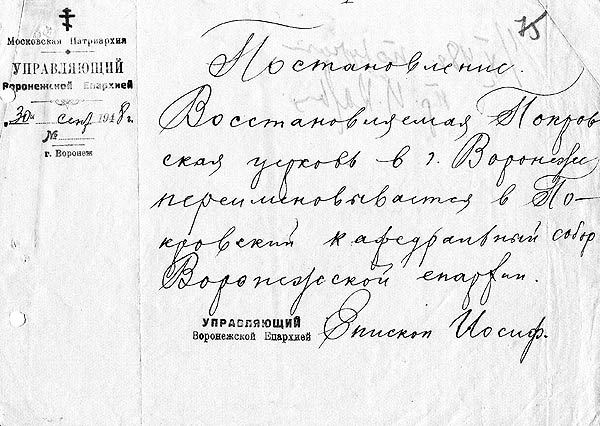 75
Московская Патриархия
УПРАВЛЯЮЩИЙ
Воронежской Епархией
"30" сент 1948 г.
№
г. Воронеж
Постановление.
Восстановляемая Покров
ская церковь в г. Воронеже
переименовывается в По-
кровский кафедральный собор
Воронежской епархии.
УПРАВЛЯЮЩИЙ
Воронежской Епархией
Епископ Иосиф.